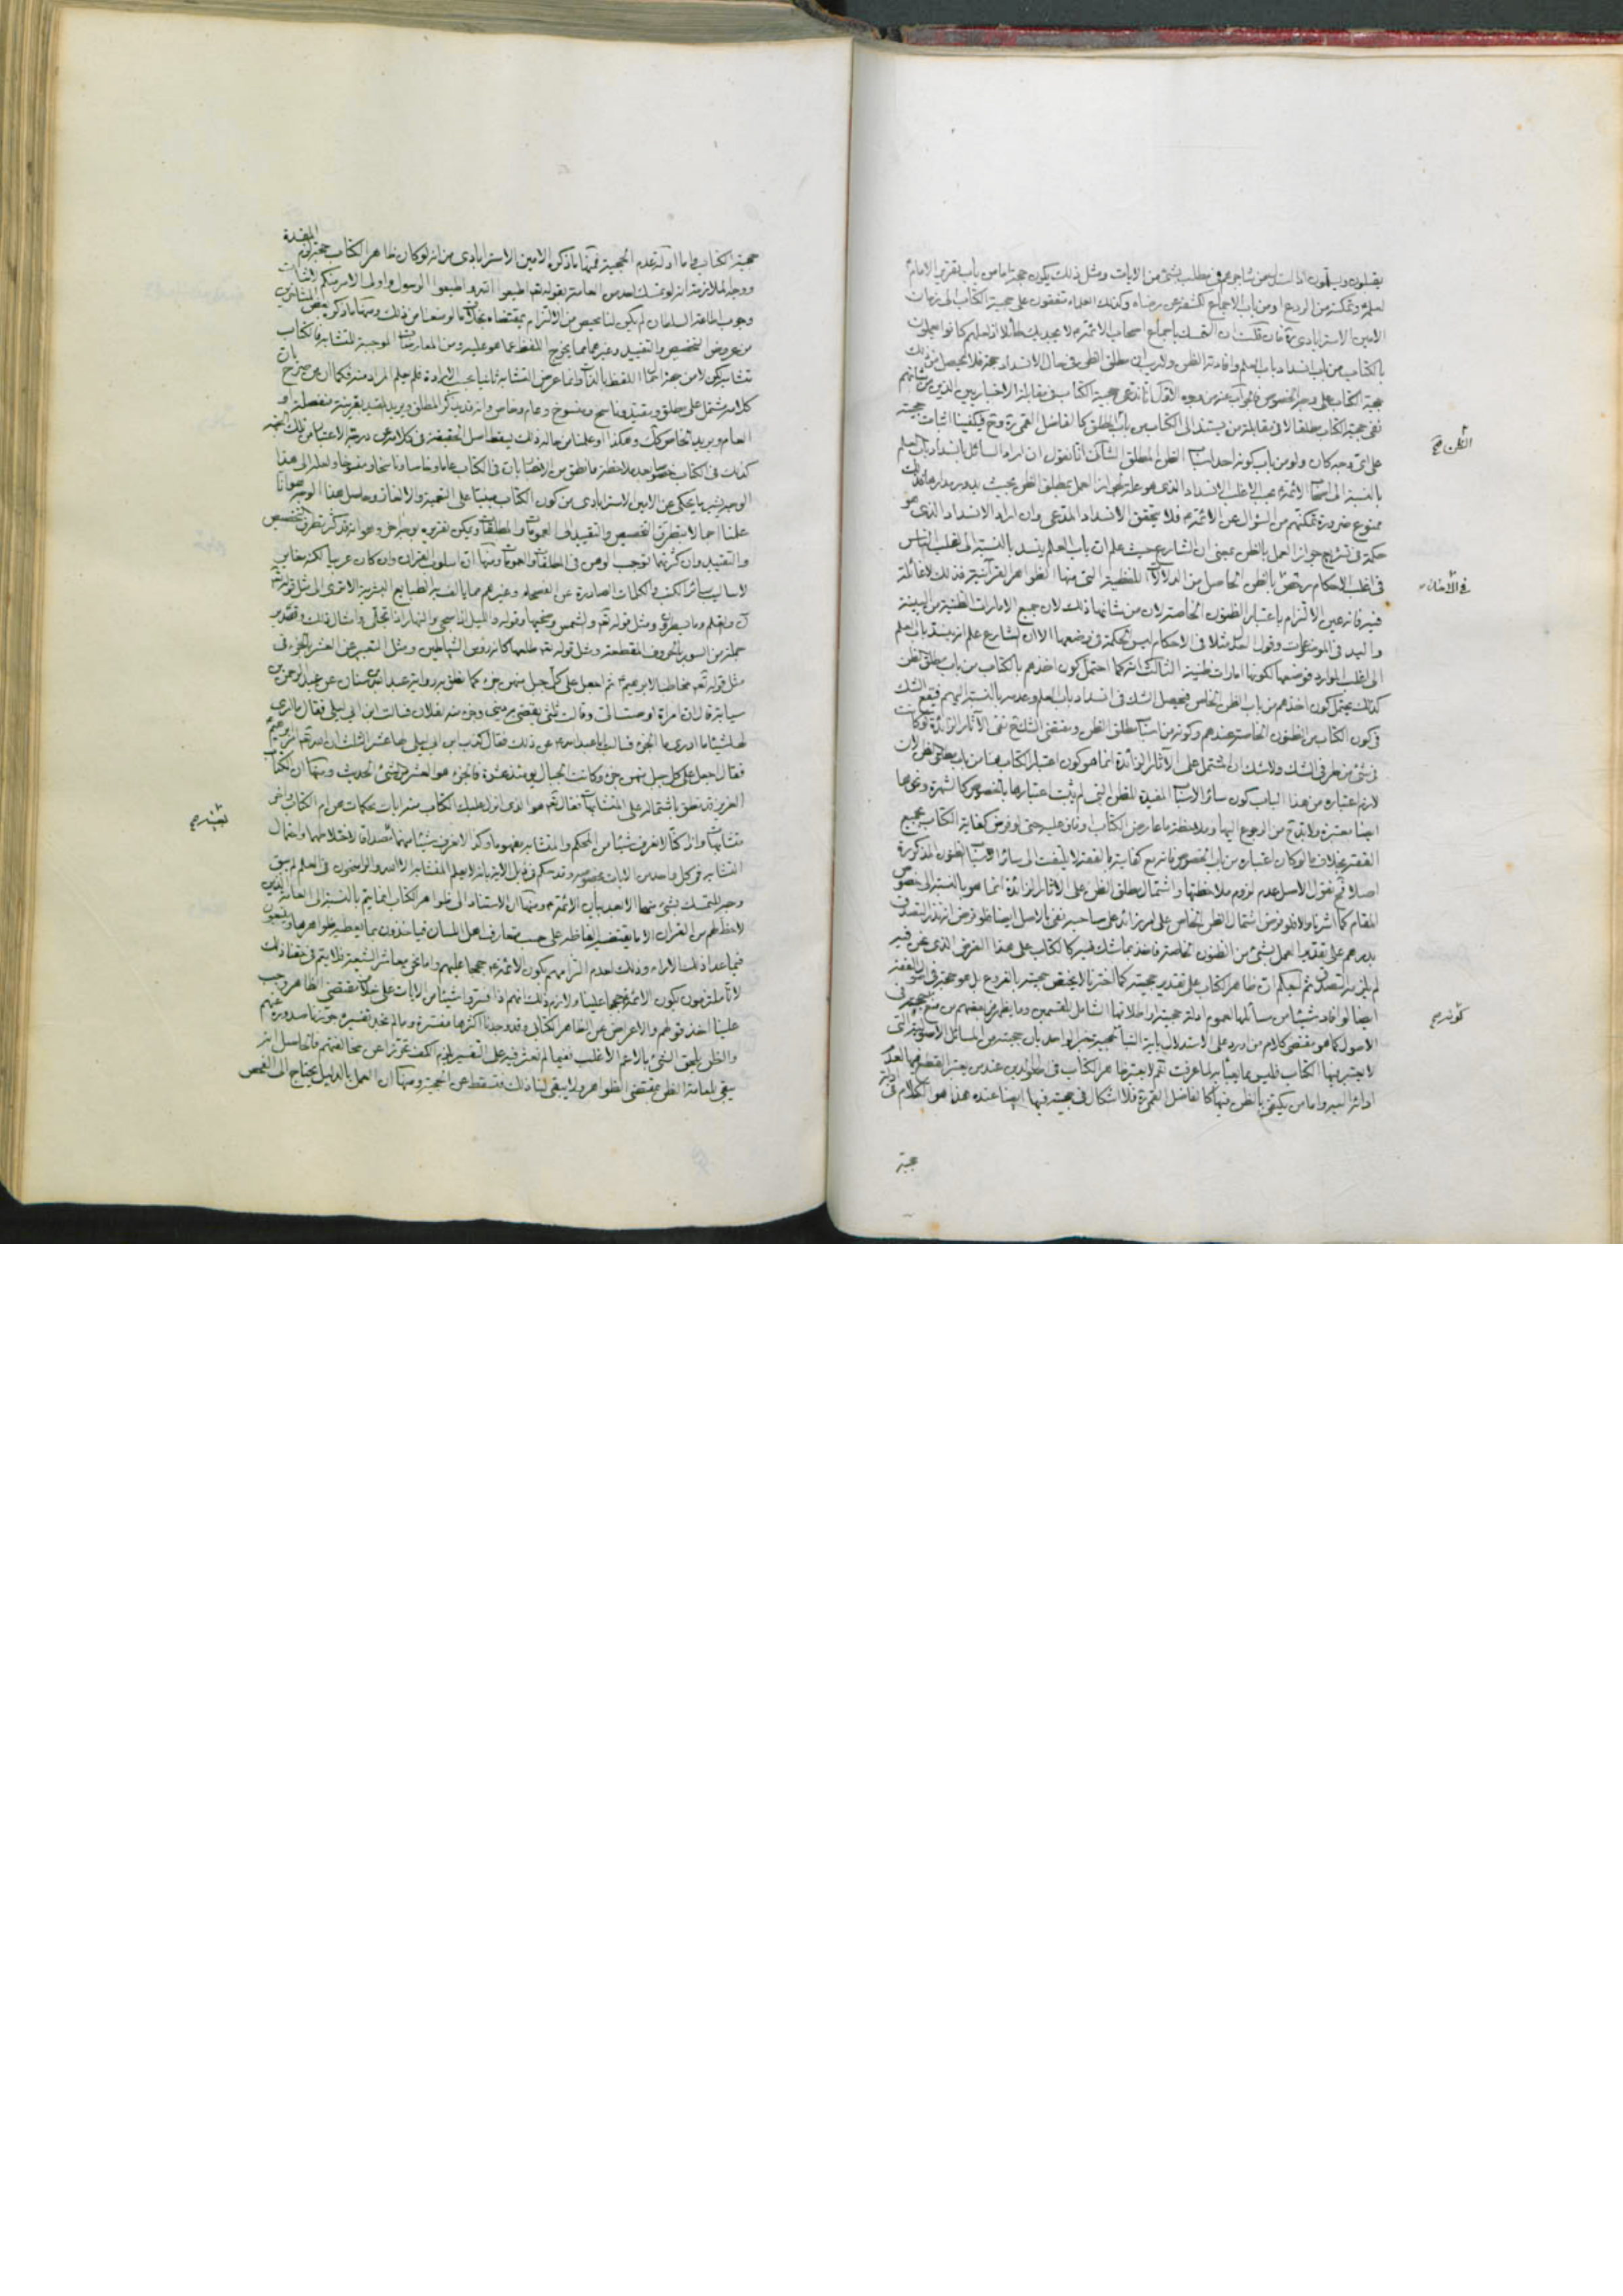 يقبلون ويسلمون اذا استدل من شاجرهم في مطلب بشئ من الايات ومثل ذلك يكون حجة اما من باب تقرير الامام
لعلمه وتمكنه من الردع او من باب الاجماع الكاشف عن رضاه وكذلك العلماء متفقون على حجية الكتاب الى زمان
الامين الاسترابادي ره فان قلت ان التمسك باجماع اصحاب الائمة ع لا يجديك طائلا اذ لعلهم كانوا عاملين
بالكتاب من باب انسداد باب العلم وافادته الظن ولا ريب ان مطلق الظن في حال الانسداد حجة فلا محيص من ذلك
بحجية الكتاب على وجه الخصوص فالجواب عنه من وجوه الاول انا ندعي حجية الكتاب في مقابلة الاخباريين الذين من شانهم
نفي حجية الكتاب مطلقا لا في مقابلة من يستند الى الكتاب من باب الظن المطلق كالفاضل القمي ره وح فيكفينا اثبات حجيته
على اي وجه كان ولو من باب كونه احد اسباب الظن المطلق الثاني انا نقول ان اراد السائل بانسداد باب العلم
بالنسبة الى اصحاب الائمة ع بحسب الاغلب الانسداد الذي هو علة لجواز العمل بمطلق الظن بحيث يدور مداره فذلك
ممنوع ضرورة تمكنهم من السؤال عن الائمة ع فلا يتحقق الانسداد المدعى وان اراد الانسداد الذي هو
حكمة في تشريع جواز العمل بالظن بمعنى ان الشارع حيث علم ان باب العلم ينسد بالنسبة الى اغلب الناس
في اغلب الاحكام رخص بالظن الحاصل من الدلالات اللفظية التي منها الظواهر القرآنية فذلك لا غائلة
فيه فانه عين الالتزام باعتبار الظنون الخاصة لان من شانها ذلك لان جميع الامارات الظنية من البينة
واليد في الموضوعات وقول العدل مثلا في الاحكام ليس الحكمة في وضعها الا ان الشارع علم انه ينسد باب العلم
الى اغلب الموارد فوضعها لكونها امارات ظنية الثالث انه كما احتمل كون اخذهم بالكتاب من باب مطلق الظن
كذلك يحتمل كون اخذهم من باب الظن الخاص فيحصل الشك في انسداد باب العلم وعدمه بالنسبة اليهم فيقع الشك
في كون الكتاب من الظنون الخاصة عندهم وكونه من اسباب مطلق الظن ومقتضى الشك ح نفي الاثار الزائدة لو كانت
في شئ من طرفي الشك ولا شك ان المشتمل على الاثار الزائدة انما هو كون اعتبار الكتاب هنا من باب مطلق الظن لان
لازم اعتباره من هذا الباب كون سائر الاسباب المفيدة للظن التي لم يثبت اعتبارها بالخصوص كالشهرة ونحوها
ايضا معتبرة ولا بد ح من الرجوع اليها وملاحظة ما عارض الكتاب او وافق عليه حتى لو فرض كفاية الكتاب بجميع
الفقه بخلاف ما لو كان اعتباره من باب الخصوص فانه مع كفايته بالفقه لا يلتفت الى سائر اسباب الظنون المذكورة
اصلا فح نقول الاصل عدم لزوم ملاحظتها واشتمال مطلق الظن على الاثار الزائدة انما هو بالنسبة الى خصوص
المقام كما اشرنا والا فلو فرض اشتمال الظن الخاص على امر زائد على صاحبه نفي بالاصل ايضا فلو فرض انه نذر التصدق
بدرهم على تقدير العمل بشئ من الظنون الخاصة فاخذ بما شك فيه كالكتاب على هذا الفرض الذي نحن فيه
لم يلزمه التصدق ثم ليعلم ان ظاهر الكتاب على تقدير حجيته كما اخترنا لا يختص حجيته بالفروع بل هو حجة في اصول الفقه
ايضا لو افاد شيئا من مسائلها لعموم ادلة حجيته او اطلاقها الشامل للقسمين وما يظهر من بعضهم من منع حجيته في
الاصول كما هو مقتضى كلام من اورد على الاستدلال باية النبأ لحجية خبر الواحد بان حجيته من المسائل الاصولية التي
لا يعتبر فيها الكتاب فليس مما يعبأ به لما عرفت نعم لا يعتبر ظاهر الكتاب في اصول الدين عند من يعتبر القطع فيها لعدم
ادائه اليه واما من يكتفي بالظن فيها كالفاضل القمي ره فلا اشكال في حجيته فيها ايضا عنده هذا هو الكلام في ادلة
حجية
الظن صح
في الاذهان
كونه صح
حجية الكتاب واما ادلة عدم الحجية فمنها ما ذكره الامين الاسترابادي من انه لو كان ظاهر الكتاب حجة لزم المفسدة
ووجه الملازمة انه لو تمسك احد من العامة بقوله تعالى اطيعوا الله واطيعوا الرسول واولى الامر منكم لاثبات
وجوب اطاعة السلطان لم يكن لنا محيص من الالتزام بمقتضاه بخلاف ما لو منعنا من ذلك ومنها ما ذكره بعض المتاخرين
من عروض التخصيص والتقييد وغيرهما مما يخرج اللفظ عما هو عليه ومن المعارضات الموجبة للتشابه فالكتاب
متشابه لكن لا من جهة اجمال اللفظ بالذات وانما عرض التشابه ثانيا بحسب الارادة فلم يعلم المراد منه فكما ان من صرح بان
كلامه مشتمل على مطلق ومقيد وناسخ ومنسوخ وعام وخاص وانه قد يذكر المطلق ويريد المقيد بقرينة منفصلة او
العام ويريد الخاص كذلك وهكذا وعلمنا من حاله ذلك يسقط اصل الحقيقة في كلامه عن درجة الاعتبار من تلك الجهة
الوجه يشير ما يحكى عن الامين الاسترابادي من كون الكتاب مبنيا على التعمية والالغاز وحاصل هذا الوجه هو انا
علمنا اجمالا بتطرق التخصيص والتقييد الى العمومات والمطلقات ويمكن تقريره بوجه اخر وهو انه قد كثر تطرق التخصيص
والتقييد وان كثرتهما توجب الوهن في المطلقات والعمومات ومنها ان اسلوب القران وان كان عربيا لكنه مغاير
لاساليب سائر الكتب والكلمات الصادرة عن الفصحاء وغيرهم مما يالف به الطبايع البشرية الا ترى الى مثل قوله تعالى
ن والقلم وما يسطرون ومثل قوله تعالى والشمس وضحيها وقوله والليل اذا سجى والنهار اذا تجلى وامثال ذلك وتصدير
جملة من السور بالحروف المقطعة ومثل قوله تعالى طلعها كانه رؤس الشياطين ومثل التعبير عن العشر بالجزء في
مثل قوله تعالى مخاطبا لابرهيم ع ثم اجعل على كل جبل منهن جزء كما نطق به رواية عبد الله بن سنان عن عبد الرحمن بن
سيابة قال ان امراة اوصت الى وقالت ثلثي يقضى به ديني وجزء منه لفلان فسالت ابن ابي ليلى فقال ما ارى
لها شيئا ما ادري ما الجزء فسالت ابا عبد الله ع عن ذلك فقال كذب ابن ابي ليلى لها عشر الثلث ان الله تعالى امر ابرهيم
فقال اجعل على كل جبل منهن جزء وكانت الجبال يومئذ عشرة فالجزء هو العشر من الشئ الحديث ومنها ان الكتاب
العزيز قد نطق باشتماله على المتشابهات فقال تعالى هو الذي انزل عليك الكتاب منه ايات محكمات هن ام الكتاب واخر
متشابهات وانا وان كنا نعرف شيئا من المحكم والمتشابه مفهوما ولكن لا نعرف شيئا منهما مصداقا لاختلاطهما واحتمال
التشابه في كل واحد من الايات بخصوصه وقد حكم في ذيل الاية بانه لا يعلم المتشابه الا الله والراسخون في العلم فلم يبق
وجه للتمسك بشئ منها الا بعد بيان الائمة ع ومنها ان الاستناد الى ظواهر الكتاب انما يتم بالنسبة الى العامة الذين
لا حظ لهم من القران الا ما يقتضيه الفاظه على حسب متعارف اهل اللسان فياخذون بما يعطيه ظواهرها ويتبعون
فيما عدا ذلك الاراء وذلك لعدم التزامهم بكون الائمة ع حججا عليهم واما نحن معاشر الشيعة فلا يتم في حقنا ذلك
لانا ملتزمون بكون الائمة ع حججا علينا ولازم ذلك انهم اذا فسروا شيئا من الايات على خلاف مقتضى الظاهر وجب
علينا اخذ قولهم والاعراض عن الظاهر الكتابي وقد وجدنا اكثرها مفسرة وما لم نجد تفسيره جوزنا صدوره عنهم
والظن يلحق الشئ بالاعم الاغلب ففيما لم نعثر فيه على التفسير يلزم الكف تحرزا عن مخالفتهم فالحاصل انه
يبقى للعامة الظن بمقتضى الظواهر ولا يبقى لنا ذلك فتسقط عن الحجية ومنها ان العمل بالدليل يحتاج الى الفحص
بعشر صح